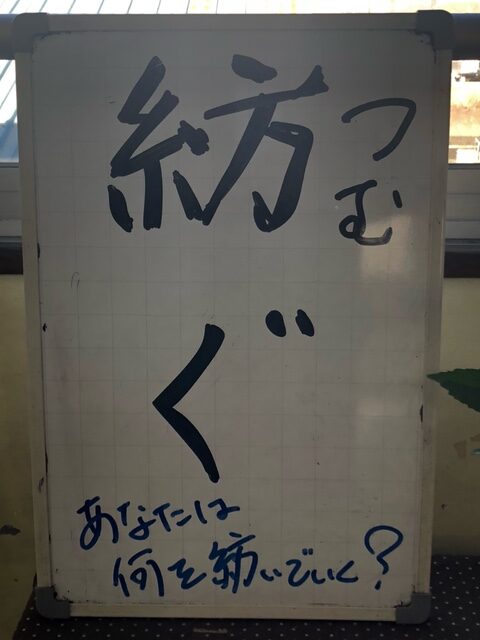 紡ぐ
つむ
あなたは
何を紡いでいく？